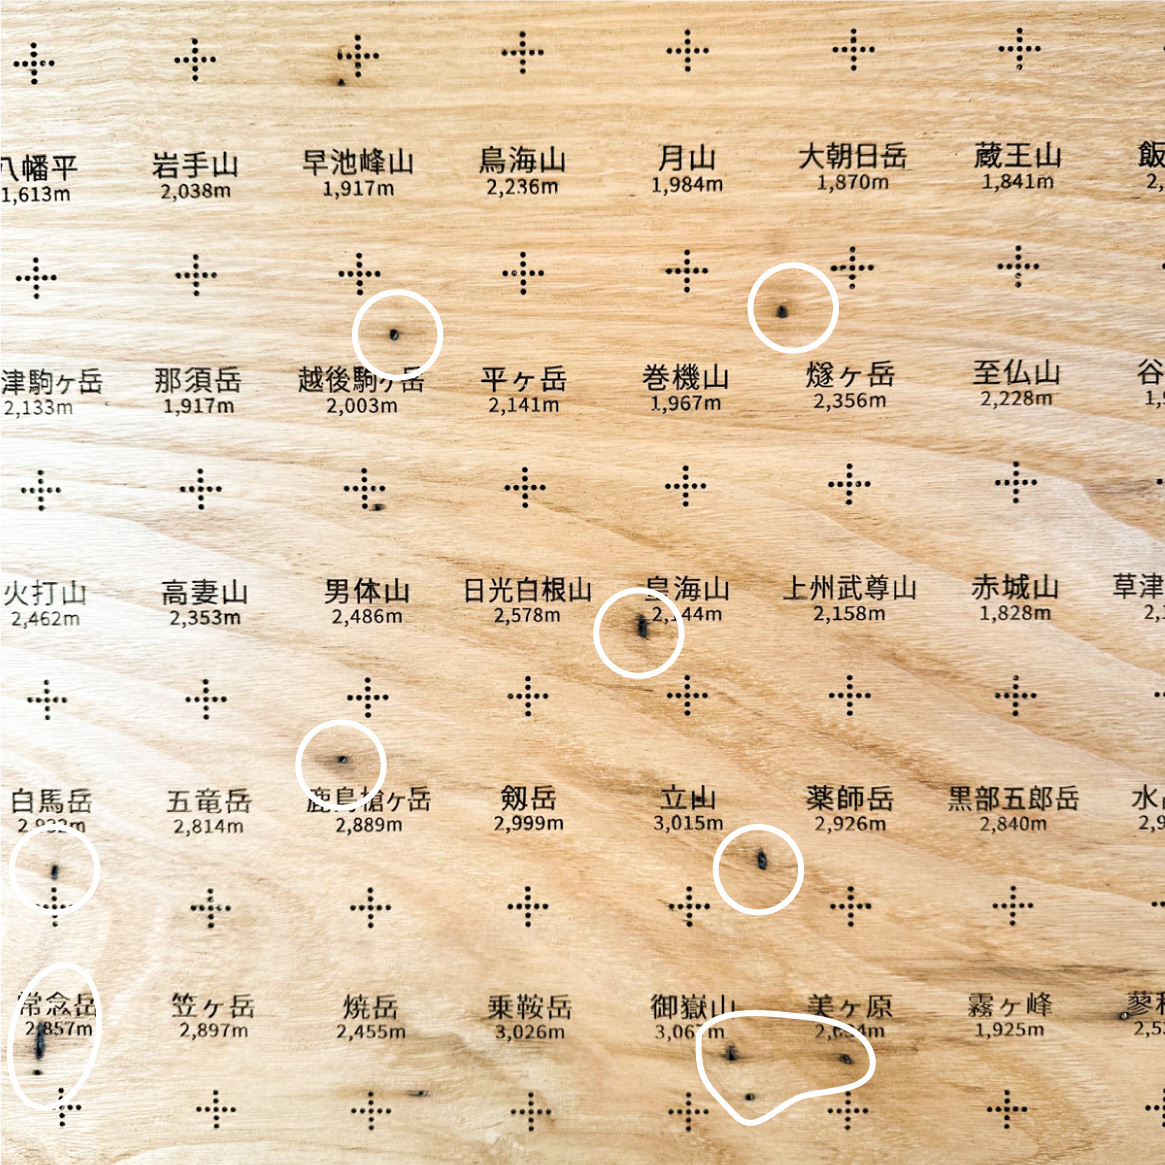 八幡平 岩手山 早池峰山 鳥海山 月山 大朝日岳 蔵王山 飯
1,613m 2,038m 1,917m 2,236m 1,984m 1,870m 1,841m 2,
津駒ヶ岳 那須岳 越後駒ヶ岳 平ヶ岳 巻機山 燧ヶ岳 至仏山 谷
2,133m 1,917m 2,003m 2,141m 1,967m 2,356m 2,228m 1,9
火打山 高妻山 男体山 日光白根山 皇海山 上州武尊山 赤城山 草津
2,462m 2,353m 2,486m 2,578m 2,144m 2,158m 1,828m 2,1
白馬岳 五竜岳 鹿島槍ヶ岳 剱岳 立山 薬師岳 黒部五郎岳 水
2,932m 2,814m 2,889m 2,999m 3,015m 2,926m 2,840m 2,9
常念岳 笠ヶ岳 焼岳 乗鞍岳 御嶽山 美ヶ原 霧ヶ峰 蓼科
2,857m 2,897m 2,455m 3,026m 3,067m 2,034m 1,925m 2,53